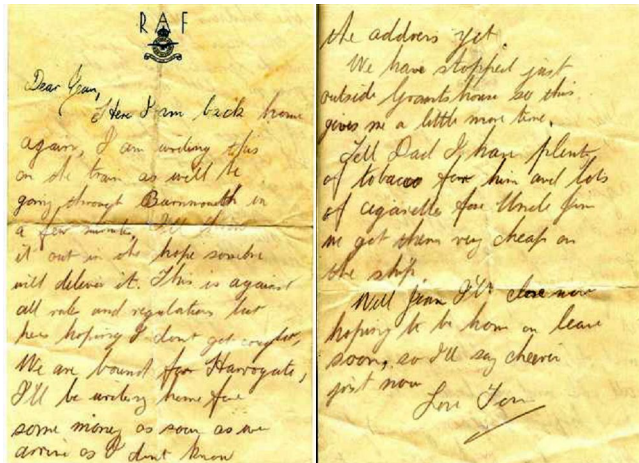 RAF
Dear Jean,
Here I am back home
again, I am writing this
on the train as will be
going through Barnmouth in
a few minutes I'll throw
it out in the hope somebne
will deliver it. This is against
all rules and regulations but
heres hoping I dont get caught,
We are bound for Harrogate,
I'll be writing home for
some money as soon as we
arrive as I dont know
the address yet.
We have stopped just
outside Grantshouse so this
gives me a little more time.
Tell Dad I have plenty
of tobacco for him and lots
of cigarettes for Uncle Jim
we got them very cheap on
the ship
Well Jean I'll close now
hoping to be home on leave
soon, so I'll say cheerio
just now
Love Tom